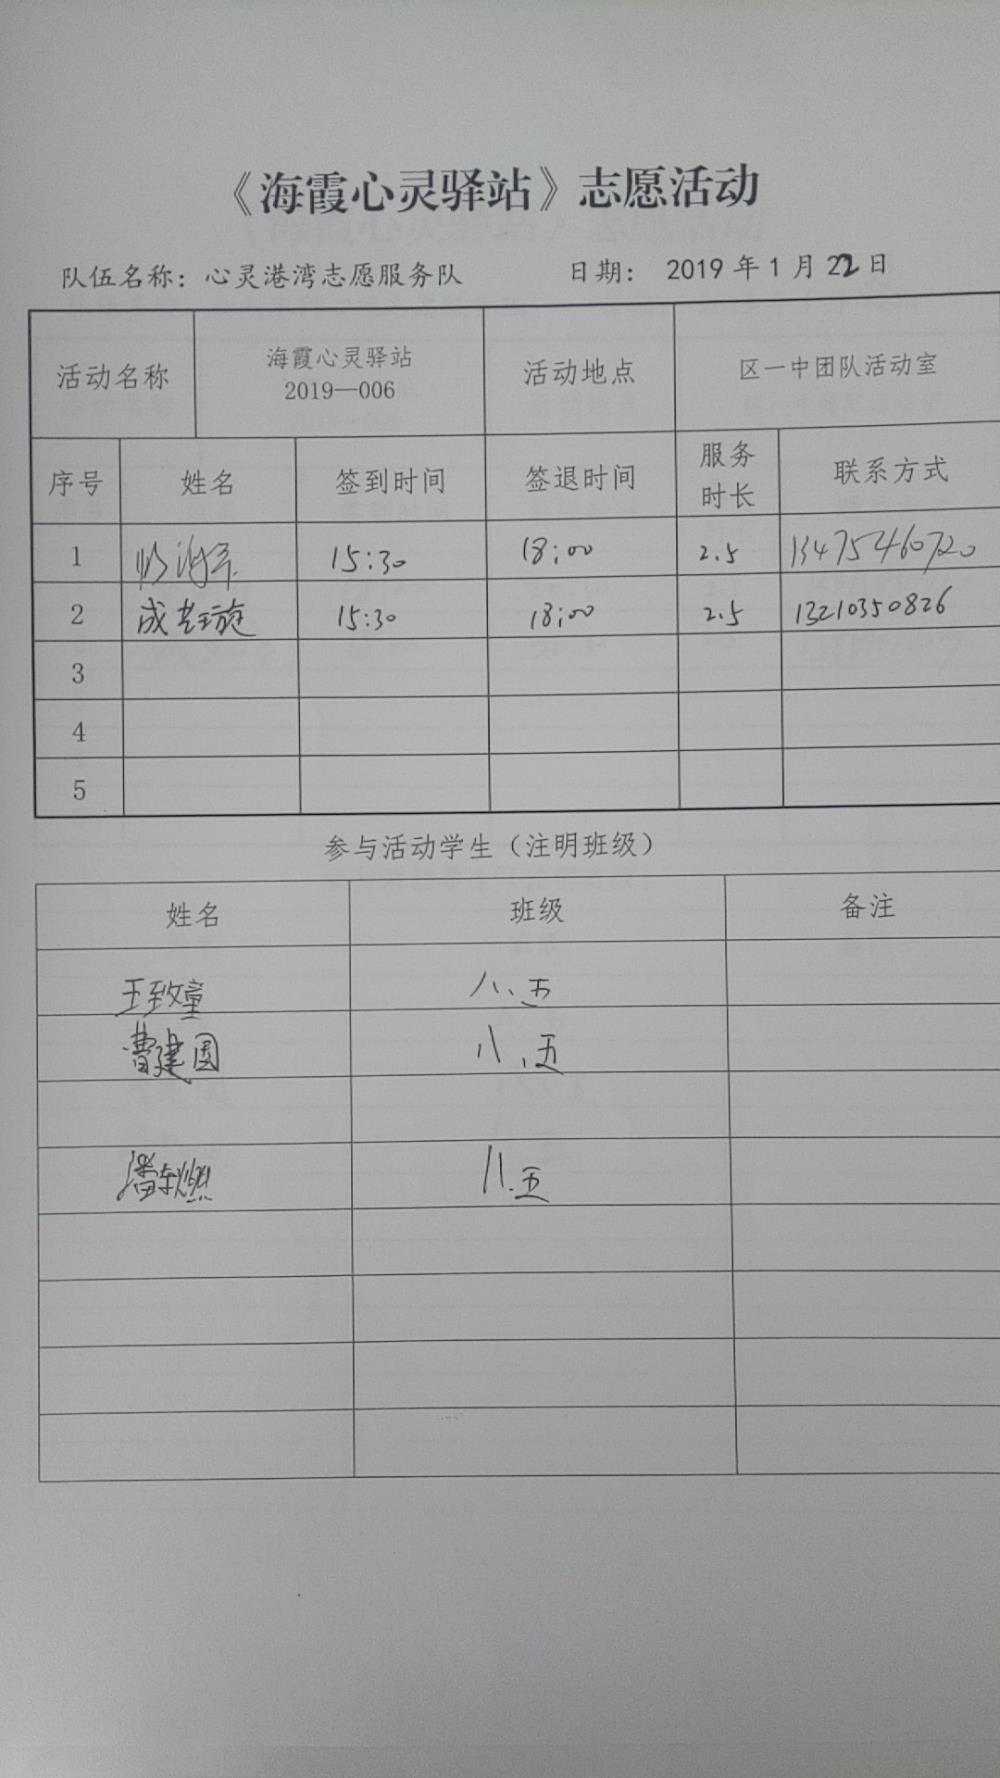 《海霞心灵驿站》志愿活动
队伍名称：心灵港湾志愿服务队 日期： 2019 年 1 月 22 日
活动名称 海霞心灵驿站 2019—006 活动地点 区一中团队活动室
序号 姓名 签到时间 签退时间 服务时长 联系方式
1 15:30 18:00 2.5 13475460720
2 成 旋 15:30 18:00 2.5 13210350826
3
4
5
参与活动学生（注明班级）
姓名 班级 备注
王致童 八、五
曹建国 八、五
潘 燃 八.五